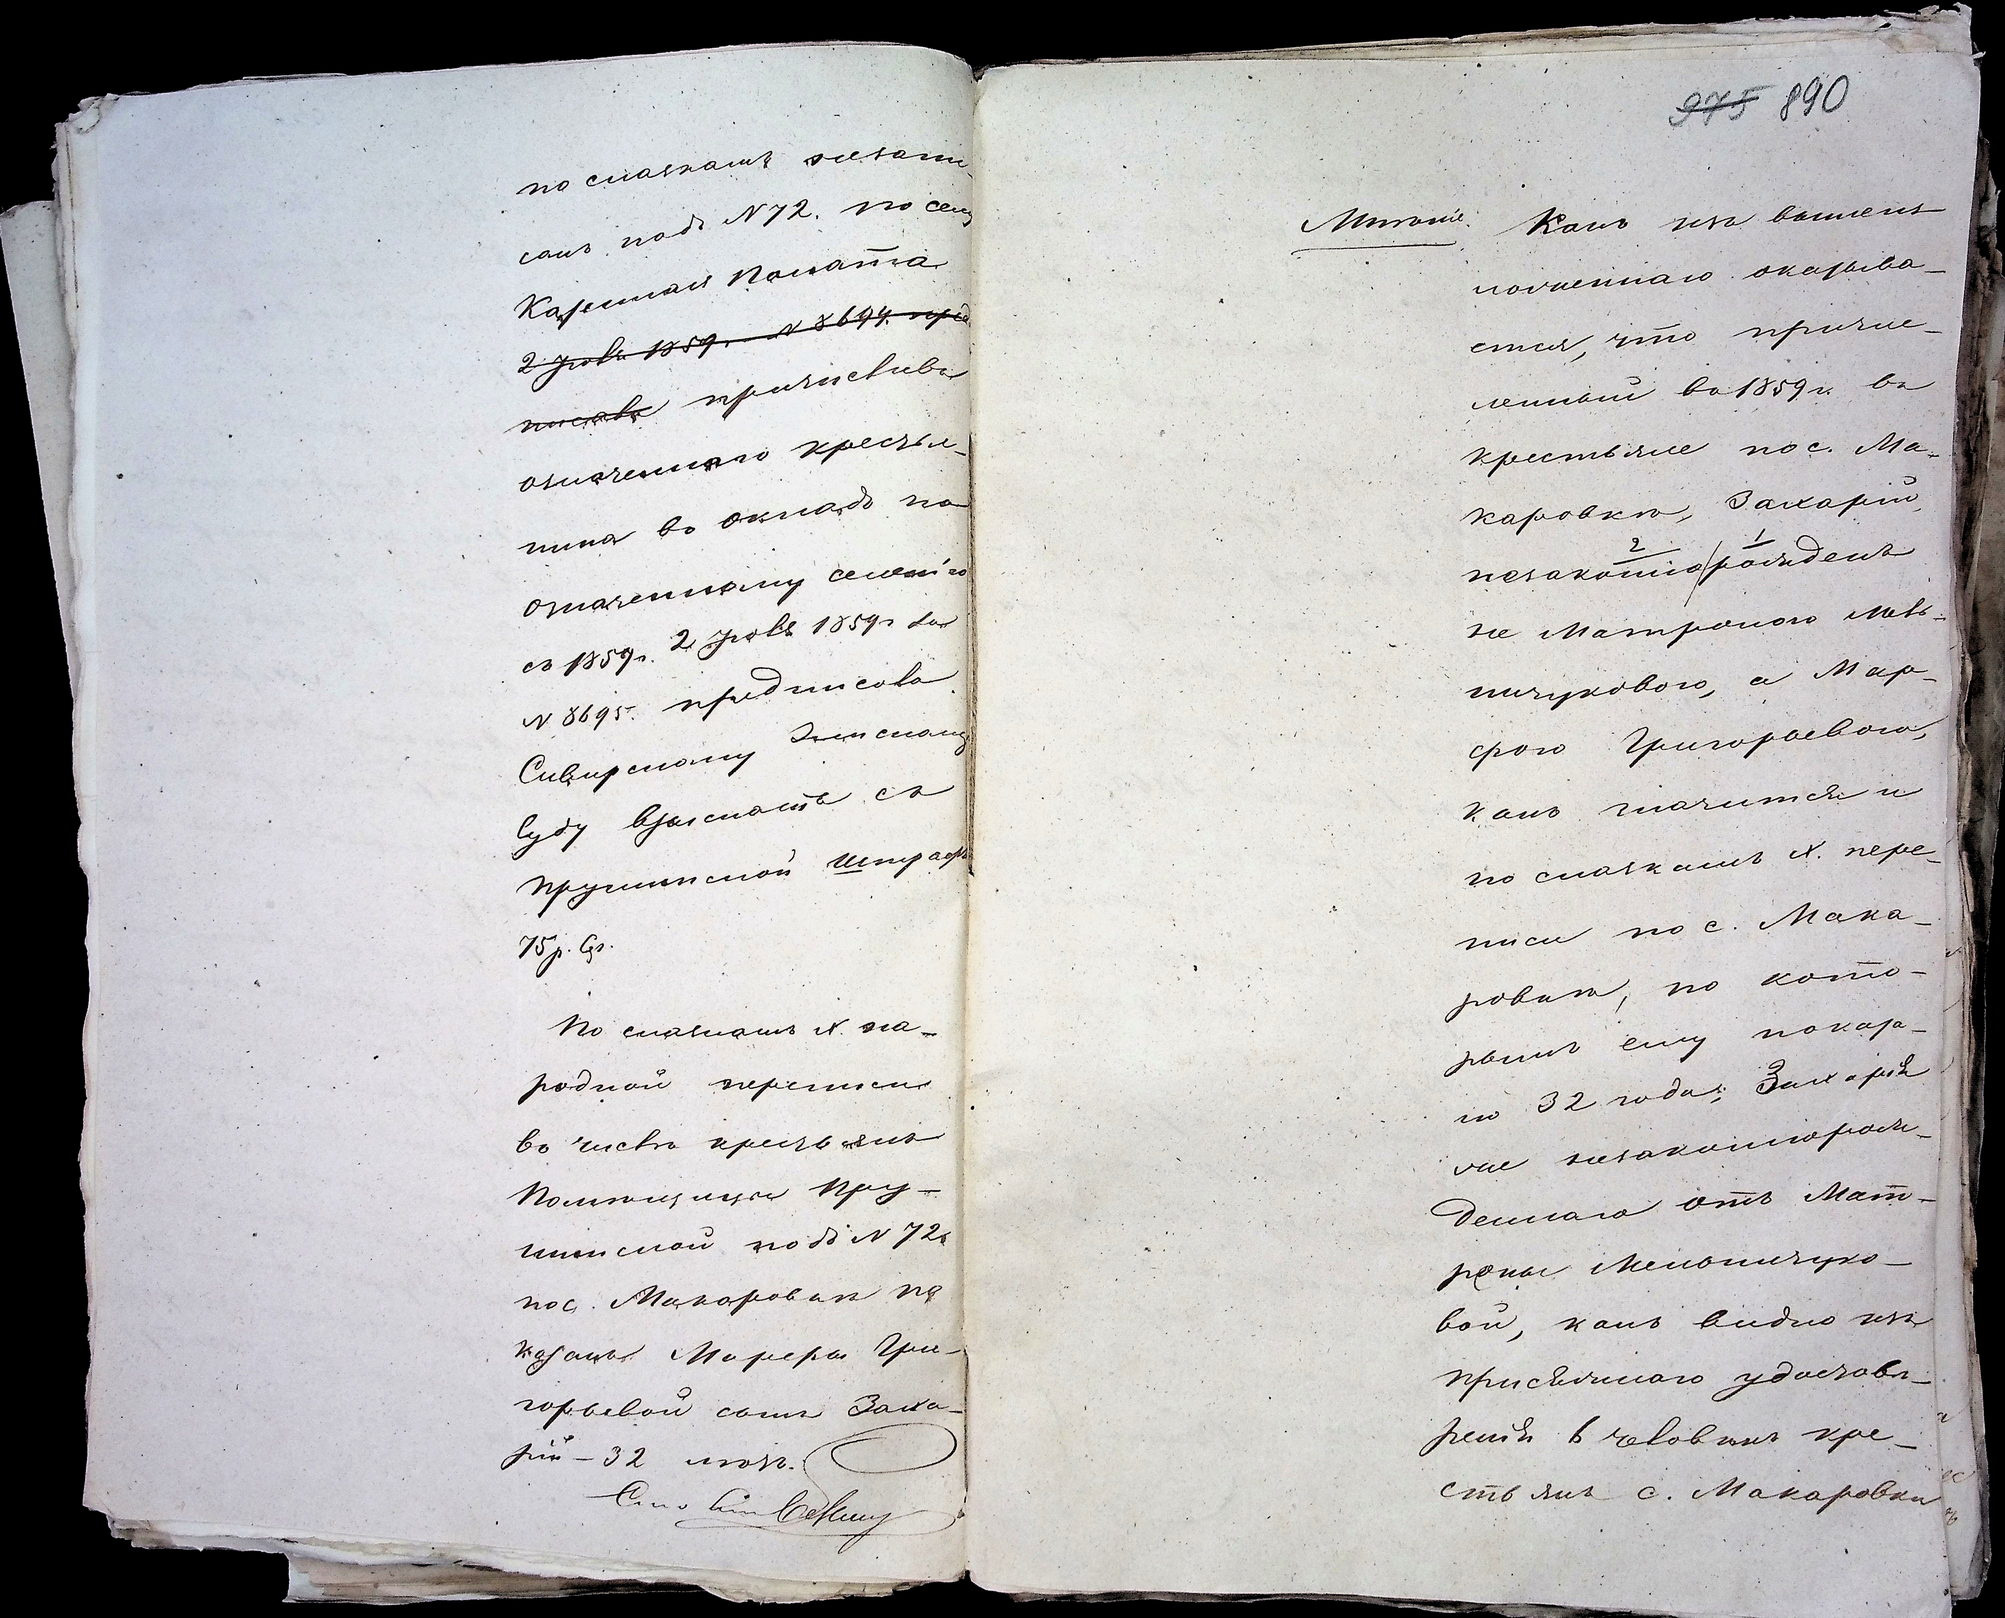 по сказкамъ незапи-
санъ подъ N 72. по сему
Казенная Палата
2 Іюля 1859 г. N 8694. пред
писала причислила
означеннаго крестья-
нина въ окладъ по
означенному селенію
съ 1859 г. 2 Іюля 1859 г. за
N 8695. предписала
Сквирскому Земскому
Суду взыскать съ
Прушинской штрафъ
75 р. Ср.
По сказкамъ X. на-
родной переписи
въ числѣ крестьянъ
Помѣщицы Пру-
шинской подъ N 72.
по с. Макаровкѣ по
казанъ Марѳы Гри-
горьевой сынъ Заха-
рій - 32 лѣтъ.
975 890
Мнѣніе. Какъ изъ вышеиз
ложеннаго оказыва-
ется, что причис-
ленный въ 1859 г. въ
крестьяне по с. Ма-
каровкѣ, Захарій,
2 1
незаконно/рожденъ
не Матроною Мель-
ничуковою, а Мар-
ѳою Григорьевою,
какъ значится и
по сказкамъ X. пере-
писи по с. Мака-
ровкѣ, по кото-
рымъ ему показа-
но 32 года; Захарія
же незаконнорож-
деннаго отъ Мат-
роны Мельничуко-
вой, какъ видно изъ
присяжнаго удостовѣ-
ренія 6 человѣкъ кре-
стьянъ с. Макаровки